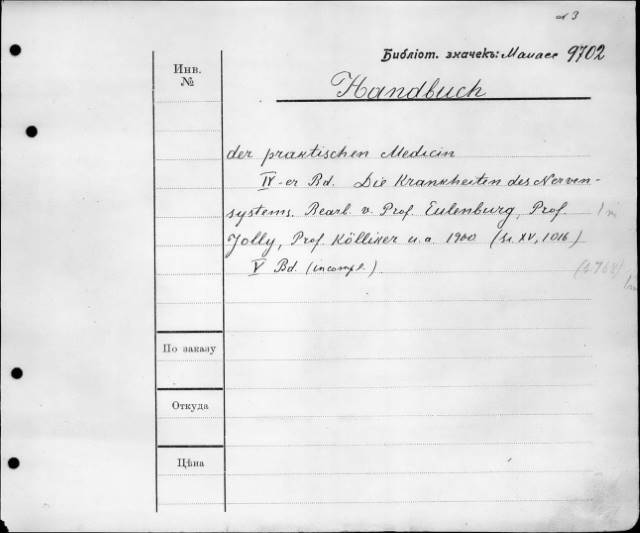 3
Библіот. значекъ: Манасс 9702
Инв.
№
Handbuch
der praktischen Medicin
IV-er Bd. Die Krankheiten des Nerven-
systems. Bearl. v. Prof. Eulenburg, Prof.
Jolly, Prof. Kölliker u. a. 1900 (St. XV, 1016)
V Bd. (incompl.)
По заказу
Откуда
Цѣна